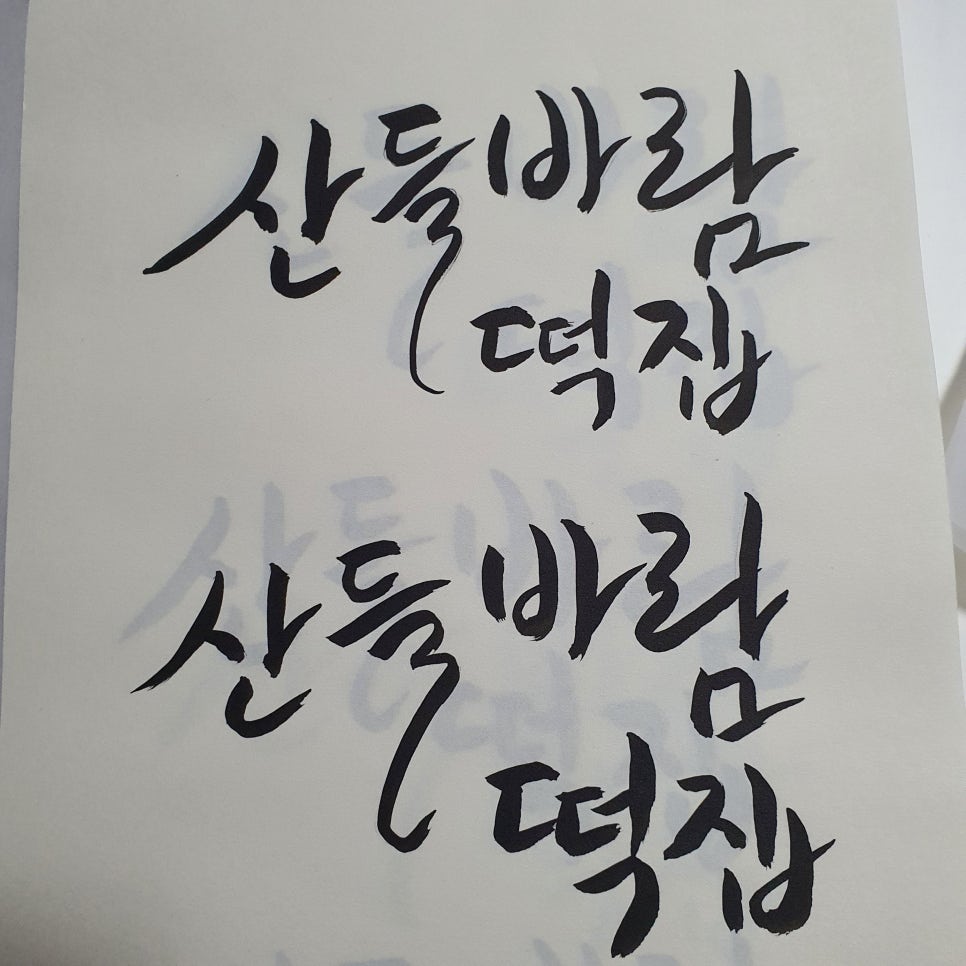 산들바람
떡집
산들바람
떡집